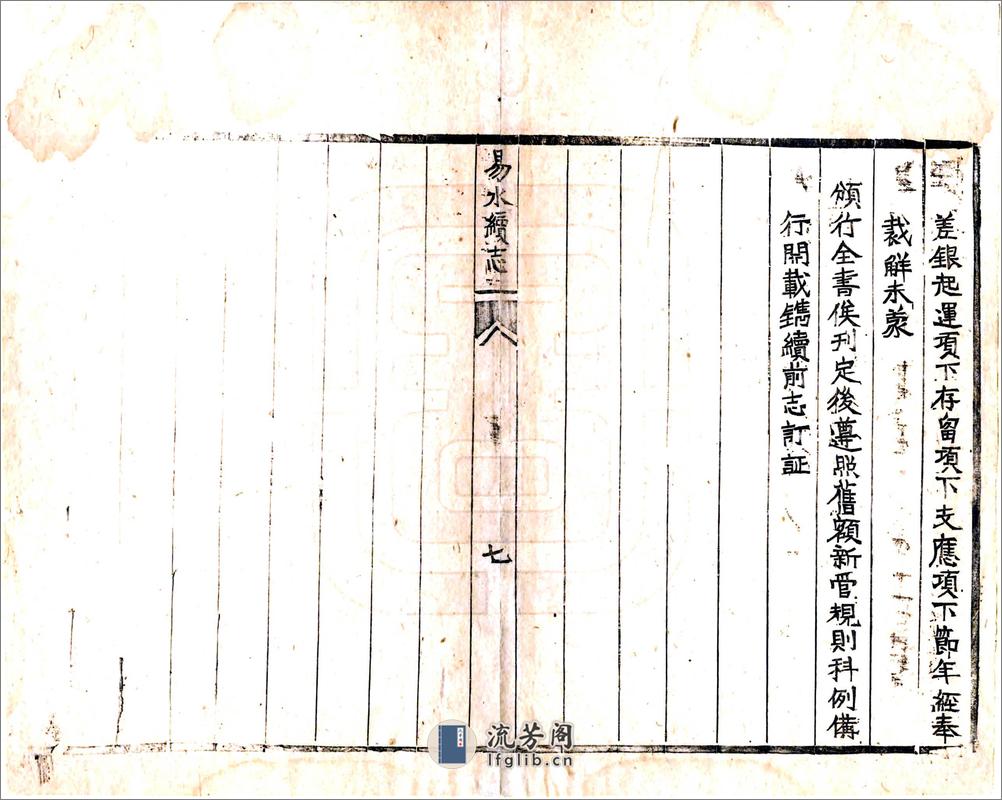 差銀起運項下存留項下支應項下節年經奉
裁觧未蒙
頒行全書俟刊定後遵照舊額新管規則科例備
行開載鐫續前志訂証
易水續志
七
流芳阁
lfglib.cn